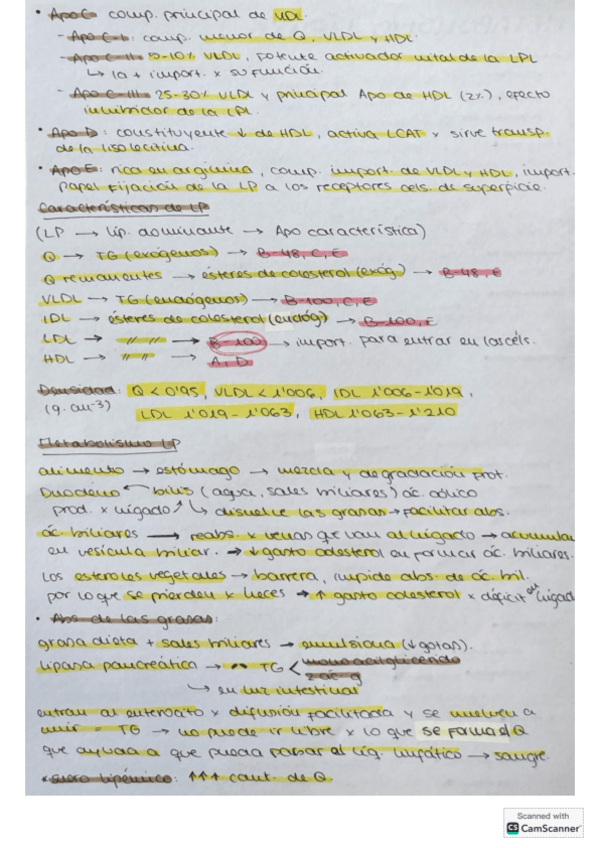 • Apo C: comp. principal de VLDL
- Apo C-I: comp. menor de Q, VLDL y HDL.
- Apo C-II: 5-10% VLDL, potente activador vital de la LPL
↳ la + import. x su función.
- Apo C-III: 25-30% VLDL y principal Apo de HDL (2%), efecto
inhibidor de la LPL.
• Apo D: constituyente ↓ de HDL, activa LCAT y sirve transp.
de la lisolecitina.
• Apo E: rica en arginina, comp. import. de VLDL y HDL, import.
papel fijación de la LP a los receptores cels. de superficie.
Características de LP
(LP → lip. dominante → Apo característica)
Q → TG (exógenos) → B-48, C, E
Q remanentes → ésteres de colesterol (exóg) → B-48, E
VLDL → TG (endógenos) → B-100, C, E
IDL → ésteres de colesterol (endóg) → B-100, E
LDL → " " → B-100 → import. para entrar en las céls.
HDL → " " → A, D
Densidad: Q < 0'95, VLDL < 1'006, IDL 1'006-1'019,
(g.cm-3) LDL 1'019-1'063, HDL 1'063-1'210
Metabolismo LP
alimento → estómago → mezcla y degradación prot.
Duodeno ← bilis (agua, sales biliares) ác. cólico
prod. x hígado ↗ ↳ disuelve las grasas → facilitar abs.
ác. biliares → reabs. x venas que van al hígado → acumulan
en vesícula biliar. → ↓ gasto colesterol en formar ác. biliares.
Los esteroles vegetales → barrera, impide abs. de ác. bil.
por lo que se pierden x heces → ↑ gasto colesterol x déficit en hígado
• Abs de las grasas:
grasa dieta + sales biliares → emulsiona (↓gotas).
lipasa pancreática → TG < monoacilglicérido
2 ác. g
↳ en luz intestinal
entran al enterocito x difusión facilitada y se vuelven a
unir = TG → no puede ir libre x lo que se forma el Q
que ayuda a que pueda pasar al líq. linfático → sangre.
* suero lipémico: ↑↑↑ cant. de Q.
Scanned with
CS CamScanner